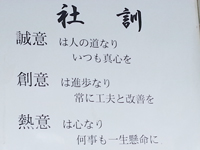 社訓
誠意 は人の道なり
いつも真心を
創意 は進歩なり
常に工夫と改善を
熱意 は心なり
何事も一生懸命に